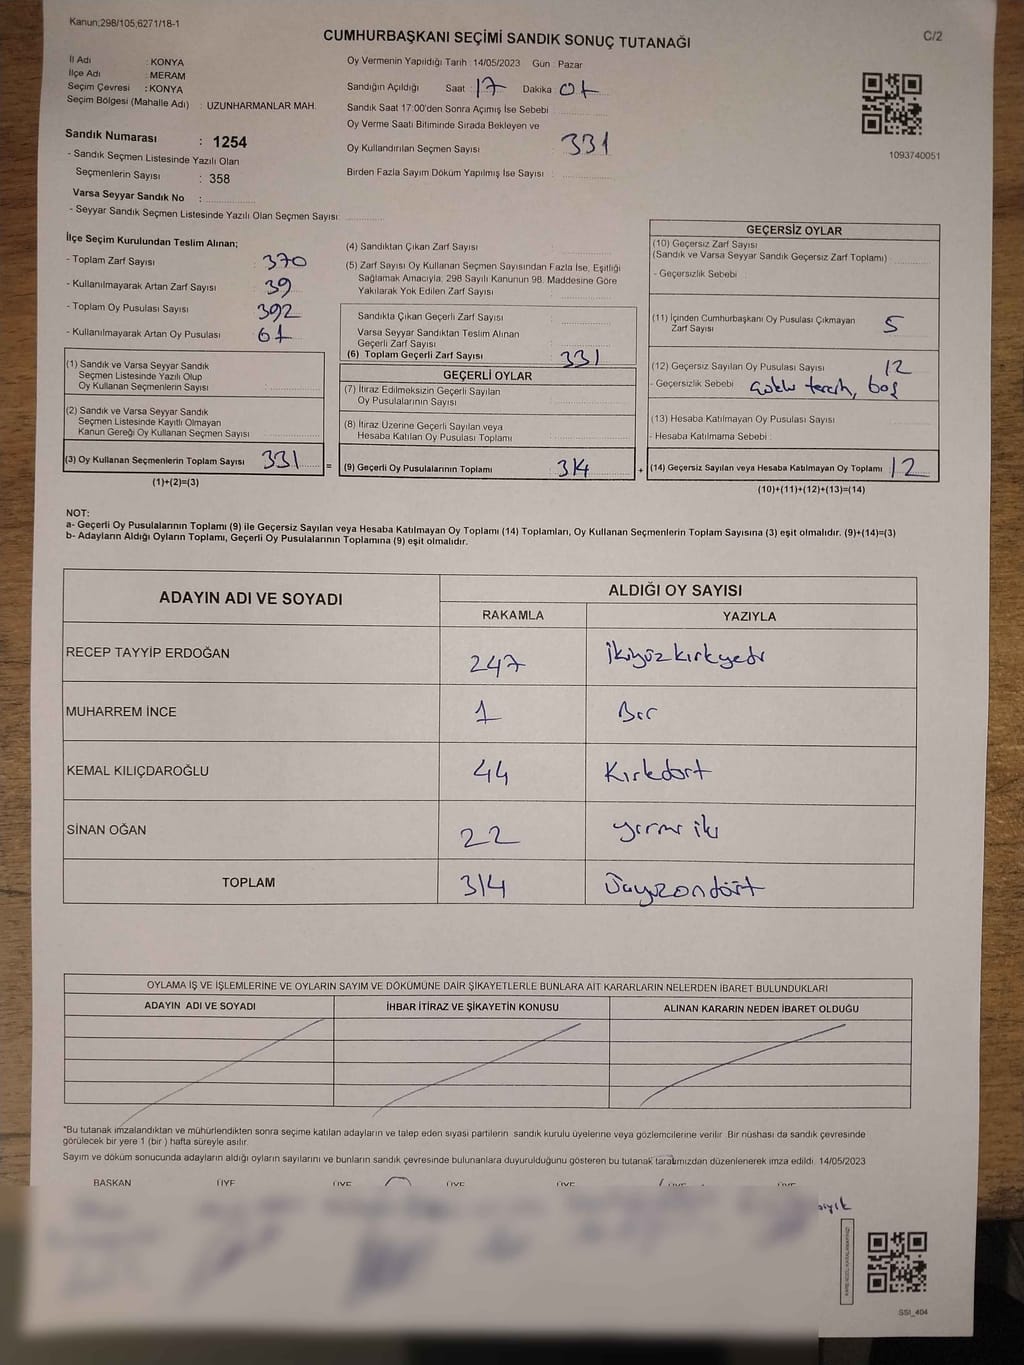 Kanun;298/105;6271/18-1
C/2
CUMHURBAŞKANI SEÇİMİ SANDIK SONUÇ TUTANAĞI
İl Adı : KONYA
İlçe Adı : MERAM
Seçim Çevresi : KONYA
Seçim Bölgesi (Mahalle Adı) : UZUNHARMANLAR MAH.
Sandık Numarası : 1254
- Sandık Seçmen Listesinde Yazılı Olan
Seçmenlerin Sayısı : 358
Varsa Seyyar Sandık No :
- Seyyar Sandık Seçmen Listesinde Yazılı Olan Seçmen Sayısı:
Oy Vermenin Yapıldığı Tarih : 14/05/2023 Gün : Pazar
Sandığın Açıldığı Saat : 17 Dakika : 01
Sandık Saat 17:00'den Sonra Açımış İse Sebebi :
Oy Verme Saati Bitiminde Sırada Bekleyen ve
Oy Kullandırılan Seçmen Sayısı : 331
Birden Fazla Sayım Döküm Yapılmış İse Sayısı :
1093740051
İlçe Seçim Kurulundan Teslim Alınan;
- Toplam Zarf Sayısı : 370
- Kullanılmayarak Artan Zarf Sayısı : 39
- Toplam Oy Pusulası Sayısı : 392
- Kullanılmayarak Artan Oy Pusulası : 61
(1) Sandık ve Varsa Seyyar Sandık
Seçmen Listesinde Yazılı Olup
Oy Kullanan Seçmenlerin Sayısı
(2) Sandık ve Varsa Seyyar Sandık
Seçmen Listesinde Kayıtlı Olmayan
Kanun Gereği Oy Kullanan Seçmen Sayısı
(3) Oy Kullanan Seçmenlerin Toplam Sayısı 331
(1)+(2)=(3)
=
(4) Sandıktan Çıkan Zarf Sayısı :
(5) Zarf Sayısı Oy Kullanan Seçmen Sayısından Fazla İse, Eşitliği
Sağlamak Amacıyla, 298 Sayılı Kanunun 98. Maddesine Göre
Yakılarak Yok Edilen Zarf Sayısı :
Sandıkta Çıkan Geçerli Zarf Sayısı
Varsa Seyyar Sandıktan Teslim Alınan
Geçerli Zarf Sayısı
(6) Toplam Geçerli Zarf Sayısı 331
GEÇERLİ OYLAR
(7) İtiraz Edilmeksizin Geçerli Sayılan
Oy Pusulalarının Sayısı
(8) İtiraz Üzerine Geçerli Sayılan veya
Hesaba Katılan Oy Pusulası Toplamı
(9) Geçerli Oy Pusulalarının Toplamı 314
+
GEÇERSİZ OYLAR
(10) Geçersiz Zarf Sayısı
(Sandık ve Varsa Seyyar Sandık Geçersiz Zarf Toplamı)
- Geçersizlik Sebebi
(11) İçinden Cumhurbaşkanı Oy Pusulası Çıkmayan
Zarf Sayısı 5
(12) Geçersiz Sayılan Oy Pusulası Sayısı 12
- Geçersizlik Sebebi çoklu tercih, boş
(13) Hesaba Katılmayan Oy Pusulası Sayısı
- Hesaba Katılmama Sebebi :
(14) Geçersiz Sayılan veya Hesaba Katılmayan Oy Toplamı 12
(10)+(11)+(12)+(13)=(14)
NOT:
a- Geçerli Oy Pusulalarının Toplamı (9) ile Geçersiz Sayılan veya Hesaba Katılmayan Oy Toplamı (14) Toplamları, Oy Kullanan Seçmenlerin Toplam Sayısına (3) eşit olmalıdır. (9)+(14)=(3)
b- Adayların Aldığı Oyların Toplamı, Geçerli Oy Pusulalarının Toplamına (9) eşit olmalıdır.
ADAYIN ADI VE SOYADI
ALDIĞI OY SAYISI
RAKAMLA YAZIYLA
RECEP TAYYİP ERDOĞAN 247 ikiyüzkırkyedi
MUHARREM İNCE 1 Bir
KEMAL KILIÇDAROĞLU 44 Kırkdört
SİNAN OĞAN 22 yirmi iki
TOPLAM 314 üçyüzondört
OYLAMA İŞ VE İŞLEMLERİNE VE OYLARIN SAYIM VE DÖKÜMÜNE DAİR ŞİKAYETLERLE BUNLARA AİT KARARLARIN NELERDEN İBARET BULUNDUKLARI
ADAYIN ADI VE SOYADI İHBAR İTİRAZ VE ŞİKAYETİN KONUSU ALINAN KARARIN NEDEN İBARET OLDUĞU
*Bu tutanak imzalandıktan ve mühürlendikten sonra seçime katılan adayların ve talep eden siyasi partilerin sandık kurulu üyelerine veya gözlemcilerine verilir. Bir nüshası da sandık çevresinde
görülecek bir yere 1 (bir ) hafta süreyle asılır.
Sayım ve döküm sonucunda adayların aldığı oyların sayılarını ve bunların sandık çevresinde bulunanlara duyurulduğunu gösteren bu tutanak tarafımızdan düzenlenerek imza edildi. 14/05/2023
BAŞKAN ÜYE ÜYE ÜYE ÜYE ÜYE ÜYE
SSI_404